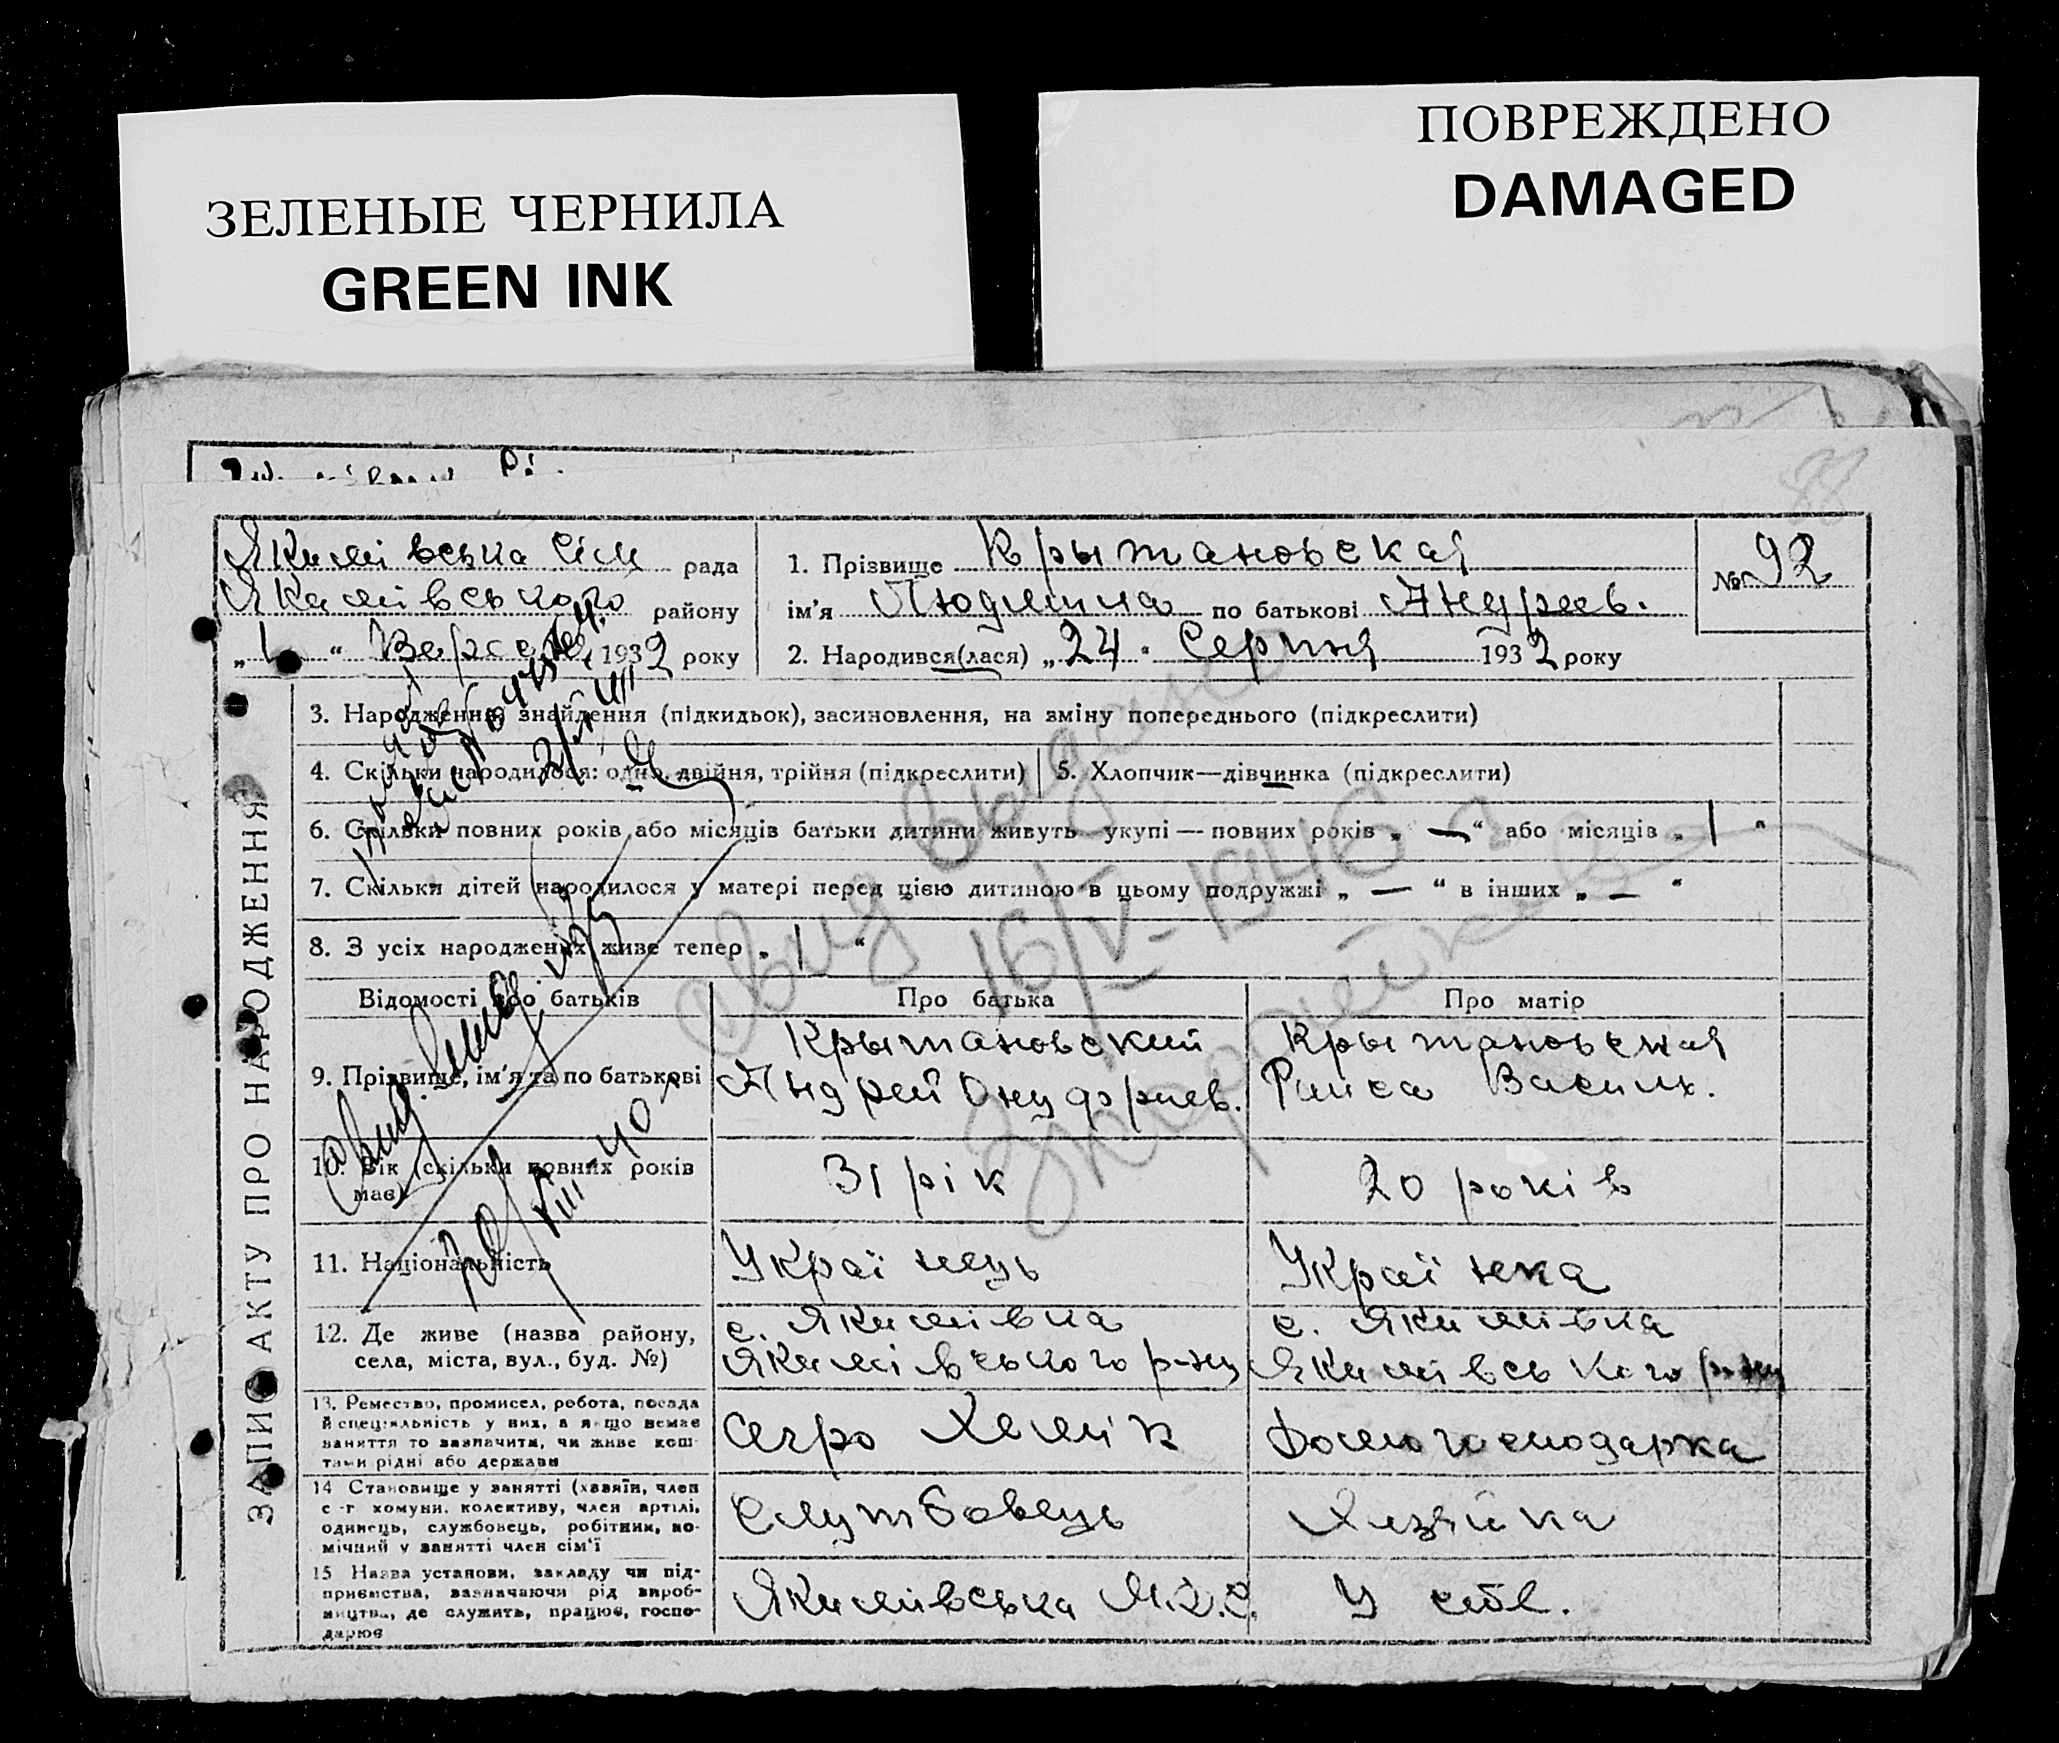 ПОВРЕЖДЕНО
DAMAGED
ЗЕЛЕНЫЕ ЧЕРНИЛА
GREEN INK
88
Якимівська Сіль рада
Якимівського району
„ 1 “ Вересня 1932 року
1. Прізвище Крыжановская
ім'я Людмила по батькові Андреев.
2. Народився(лася) „ 24 “ Серпня 1932 року
№ 92
ЗАПИС АКТУ ПРО НАРОДЖЕННЯ
3. Народження, знайдення (підкидьок), засиновлення, на зміну попереднього (підкреслити)
4. Скільки народилося: одно, двійня, трійня (підкреслити)
5. Хлопчик—дівчинка (підкреслити)
6. Скільки повних років або місяців батьки дитини живуть укупі — повних років „ — “ або місяців „ 1 “
7. Скільки дітей народилося у матері перед цією дитиною в цьому подружжі „ — “ в інших „ — “
8. З усіх народжених живе тепер „ 1 “
Відомості про батьків
Про батька
Про матір
9. Прізвище, ім'я та по батькові
Крыжановский
Андрей Онуфриев.
Крыжановская
Раиса Васильх.
10. Вік (скільки повних років має)
31 рік
20 років
11. Національність
Українець
Українка
12. Де живе (назва району, села, міста, вул., буд. №)
с. Якимівка
Якимівського р-ну
с. Якимівка
Якимівського р-ну
13. Ремество, промисел, робота, посада
й спеціяльність у них, а якщо немає
заняття то зазначити, чи живе кош-
тами рідні або держави
Агро Хемік
Домогосподарка
14 Становище у занятті (хазяїн, член
с.-г комуни. колективу, член артілі,
одинець, службовець, робітник, по-
мічний у занятті член сім'ї
Службовець
Хазяйка
15 Назва установи, закладу чи під-
приємства, зазначаючи рід вироб-
ництва, де служить, працює, госпо-
дарює
Якимівська М.Т.С.
У себе.
Свид выдано
16/V-1946